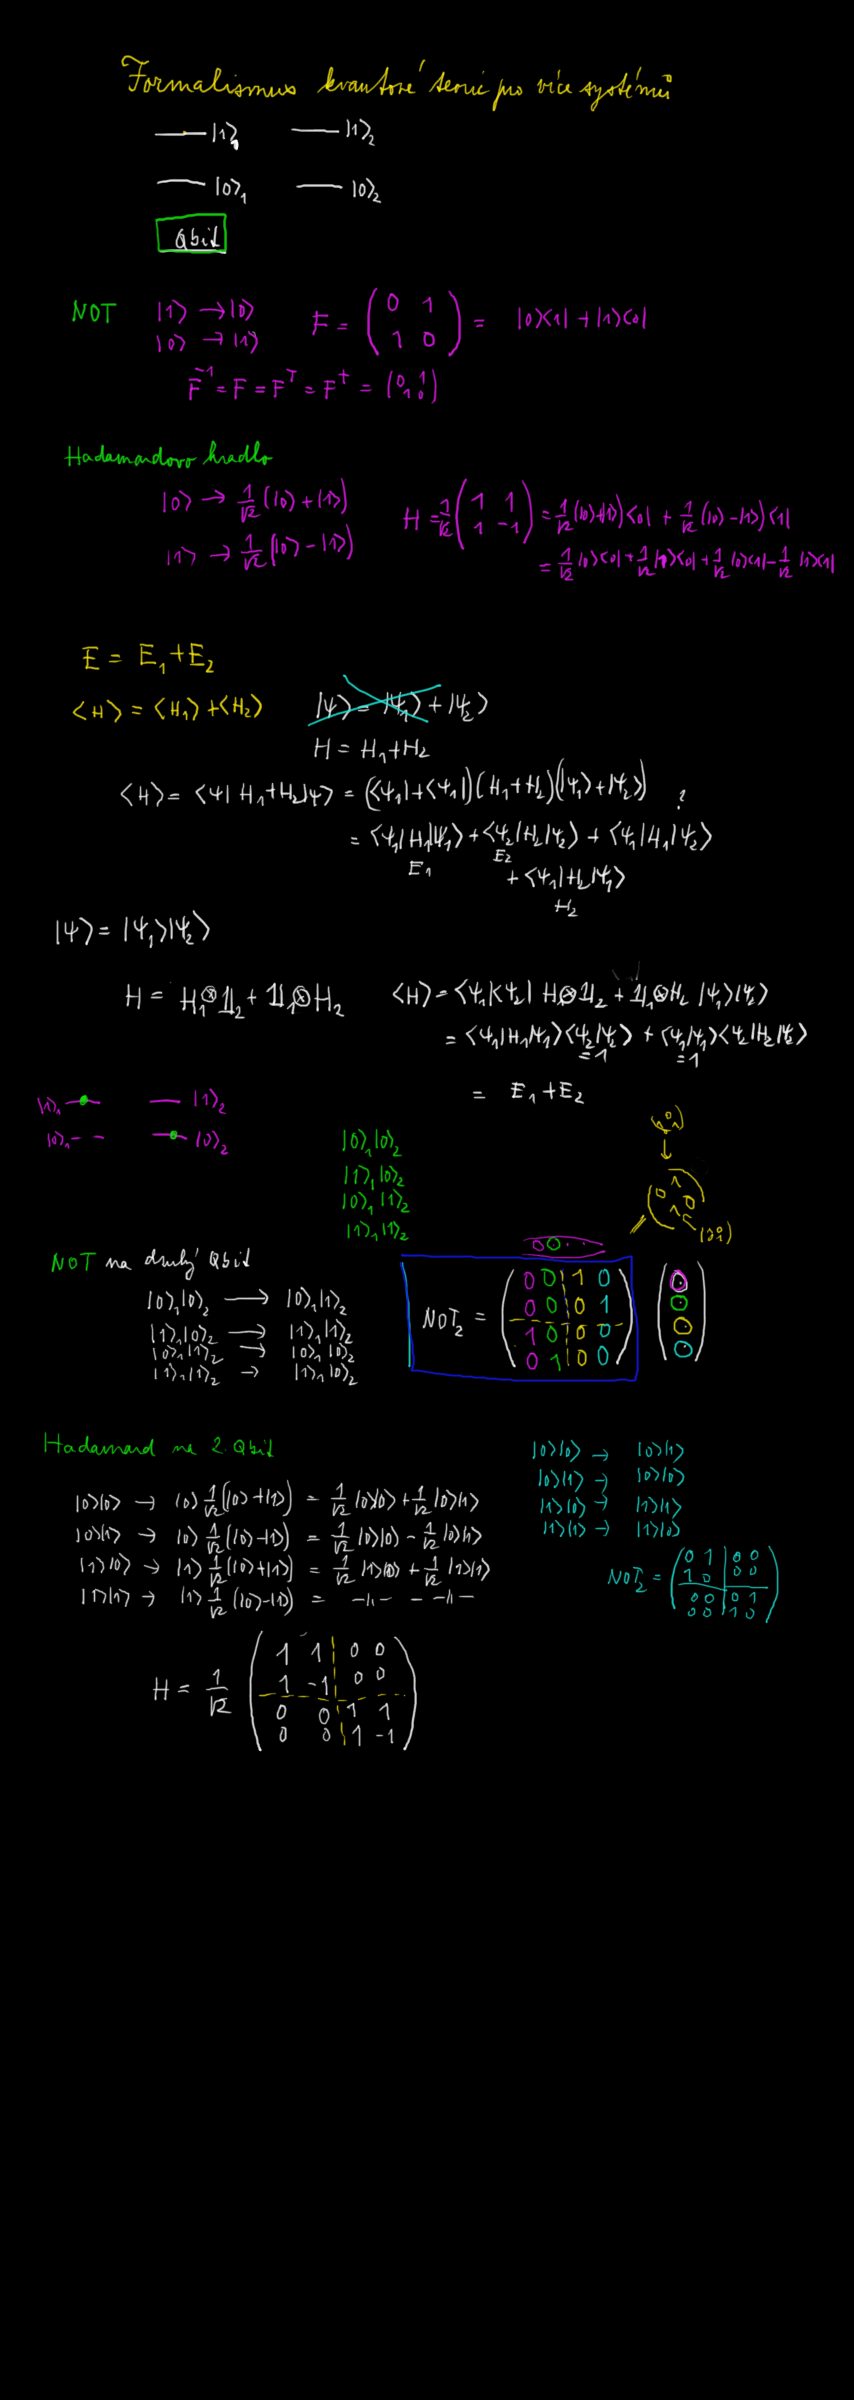 Formalismus kvantové teorie pro více systémů
|1⟩₁ |1⟩₂
|0⟩₁ |0⟩₂
Qbit
NOT |1⟩ → |0⟩ F = ( 0 1 ; 1 0 ) = |0⟩⟨1| + |1⟩⟨0|
|0⟩ → |1⟩
F⁻¹ = F = Fᵀ = F⁺ = ( 0 1 ; 1 0 )
Hadamardovo hradlo
|0⟩ → 1/√2 (|0⟩ + |1⟩) H = 1/√2 ( 1 1 ; 1 -1 ) = 1/√2 (|0⟩+|1⟩)⟨0| + 1/√2 (|0⟩-|1⟩)⟨1|
|1⟩ → 1/√2 (|0⟩ - |1⟩) = 1/√2 |0⟩⟨0| + 1/√2 |1⟩⟨0| + 1/√2 |0⟩⟨1| - 1/√2 |1⟩⟨1|
E = E₁ + E₂
⟨H⟩ = ⟨H₁⟩ + ⟨H₂⟩ |ψ⟩ = |ψ₁⟩ + |ψ₂⟩
H = H₁ + H₂
⟨H⟩ = ⟨ψ| H₁+H₂ |ψ⟩ = (⟨ψ₁|+⟨ψ₁|)(H₁+H₂)(|ψ₁⟩+|ψ₂⟩) ?
= ⟨ψ₁|H₁|ψ₁⟩ + ⟨ψ₂|H₂|ψ₂⟩ + ⟨ψ₁|H₁|ψ₂⟩
E₁ E₂
+ ⟨ψ₁|H₂|ψ₁⟩
H₂
|ψ⟩ = |ψ₁⟩|ψ₂⟩
H = H₁⊗1₂ + 1₁⊗H₂ ⟨H⟩ = ⟨ψ₁|⟨ψ₂| H₁⊗1₂ + 1₁⊗H₂ |ψ₁⟩|ψ₂⟩
= ⟨ψ₁|H₁|ψ₁⟩⟨ψ₂|ψ₂⟩ + ⟨ψ₁|ψ₁⟩⟨ψ₂|H₂|ψ₂⟩
=1 =1
= E₁ + E₂
|1⟩₁ |1⟩₂
|0⟩₁ |0⟩₂
|0⟩₁|0⟩₂
|1⟩₁|0⟩₂
|0⟩₁|1⟩₂
|1⟩₁|1⟩₂
NOT na druhý Qbit
|0⟩₁|0⟩₂ → |0⟩₁|1⟩₂
|1⟩₁|0⟩₂ → |1⟩₁|1⟩₂
|0⟩₁|1⟩₂ → |0⟩₁|0⟩₂
|1⟩₁|1⟩₂ → |1⟩₁|0⟩₂
NOT₂ = ( 0 0 1 0 ; 0 0 0 1 ; 1 0 0 0 ; 0 1 0 0 )
Hadamard na 2. Qbit
|0⟩|0⟩ → |0⟩ 1/√2 (|0⟩+|1⟩) = 1/√2 |0⟩|0⟩ + 1/√2 |0⟩|1⟩
|0⟩|1⟩ → |0⟩ 1/√2 (|0⟩-|1⟩) = 1/√2 |0⟩|0⟩ - 1/√2 |0⟩|1⟩
|1⟩|0⟩ → |1⟩ 1/√2 (|0⟩+|1⟩) = 1/√2 |1⟩|0⟩ + 1/√2 |1⟩|1⟩
|1⟩|1⟩ → |1⟩ 1/√2 (|0⟩-|1⟩) = -||- - -||-
|0⟩|0⟩ → |0⟩|1⟩
|0⟩|1⟩ → |0⟩|0⟩
|1⟩|0⟩ → |1⟩|1⟩
|1⟩|1⟩ → |1⟩|0⟩
NOT₂ = ( 0 1 0 0 ; 1 0 0 0 ; 0 0 0 1 ; 0 0 1 0 )
H = 1/√2 ( 1 1 0 0 ; 1 -1 0 0 ; 0 0 1 1 ; 0 0 1 -1 )